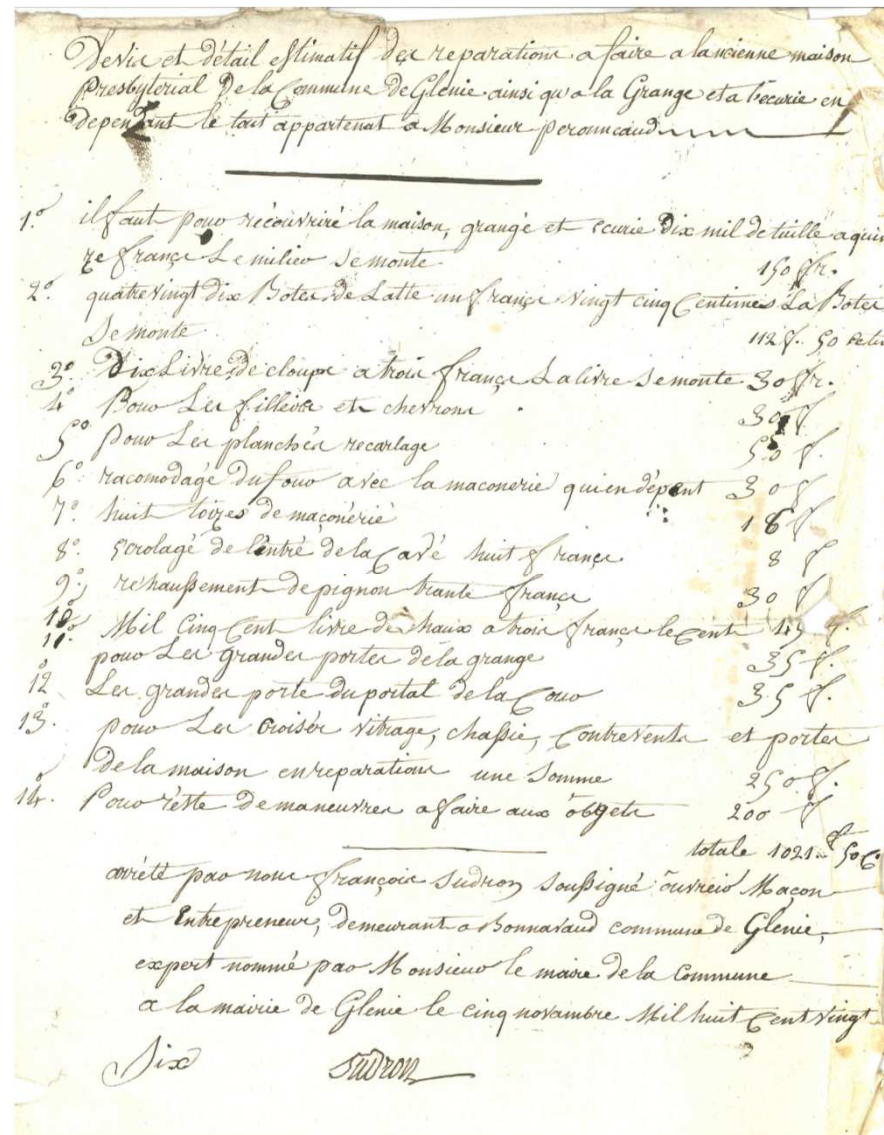 Devis et détail estimatif des reparations a faire a lancienne maison
Presbyterial De la Commune de Glenie ainsi qu'a la Grange et a l'écurie en
dependant le tout appartenat a Monsieur peronneaud
1.° il faut pour récouvriré la maison, grangé et ecurie Dix mil de tuille a quin
ze francs Le milier se monte 150 fr.
2.° quatrevingt dix Botes de Latte un francs vingt cinq Centimes La Botes
Se monte 112 f. 50
3.° Dix Livres de cloups a trois francs La livre se monte 30 fr.
4.° Pour Les fillières et chevrons 30 f
5.° Pour Les planchés recarlage 50 f.
6.° racomodagé du four avec la maconerié qui en dépent 30 f
7.° huit toizes de maçonérié 16 f
8.° de l'entré de la Cavé huit francs 8 f
9.° réhaussement de pignon trante francs 30 f
10.° Mil Cinq Cent livre de chaux a trois francs le Cent 45 f.
11.° pour Les grandes portes de la grange 35 f.
12.° Les grandes porte du portal de la Cour 35 f.
13.° pour Les Croisés vitrage, chassie, Contrevents et portes
de la maison en reparations une Somme 250 f.
14.° Pour réste de maneuvres a faire aux óbgets 200 f
totale 1021 f 50 C.
arrété par nous françois Sudron Soussigné Maçon
et Entrepreneur, demeurant a Bonnavaud commune de Glenie,
expert nommé par Monsieur le maire de la Commune
a la mairie de Glenie le cinq novambre Mil huit Cent vingt
Six Sudron